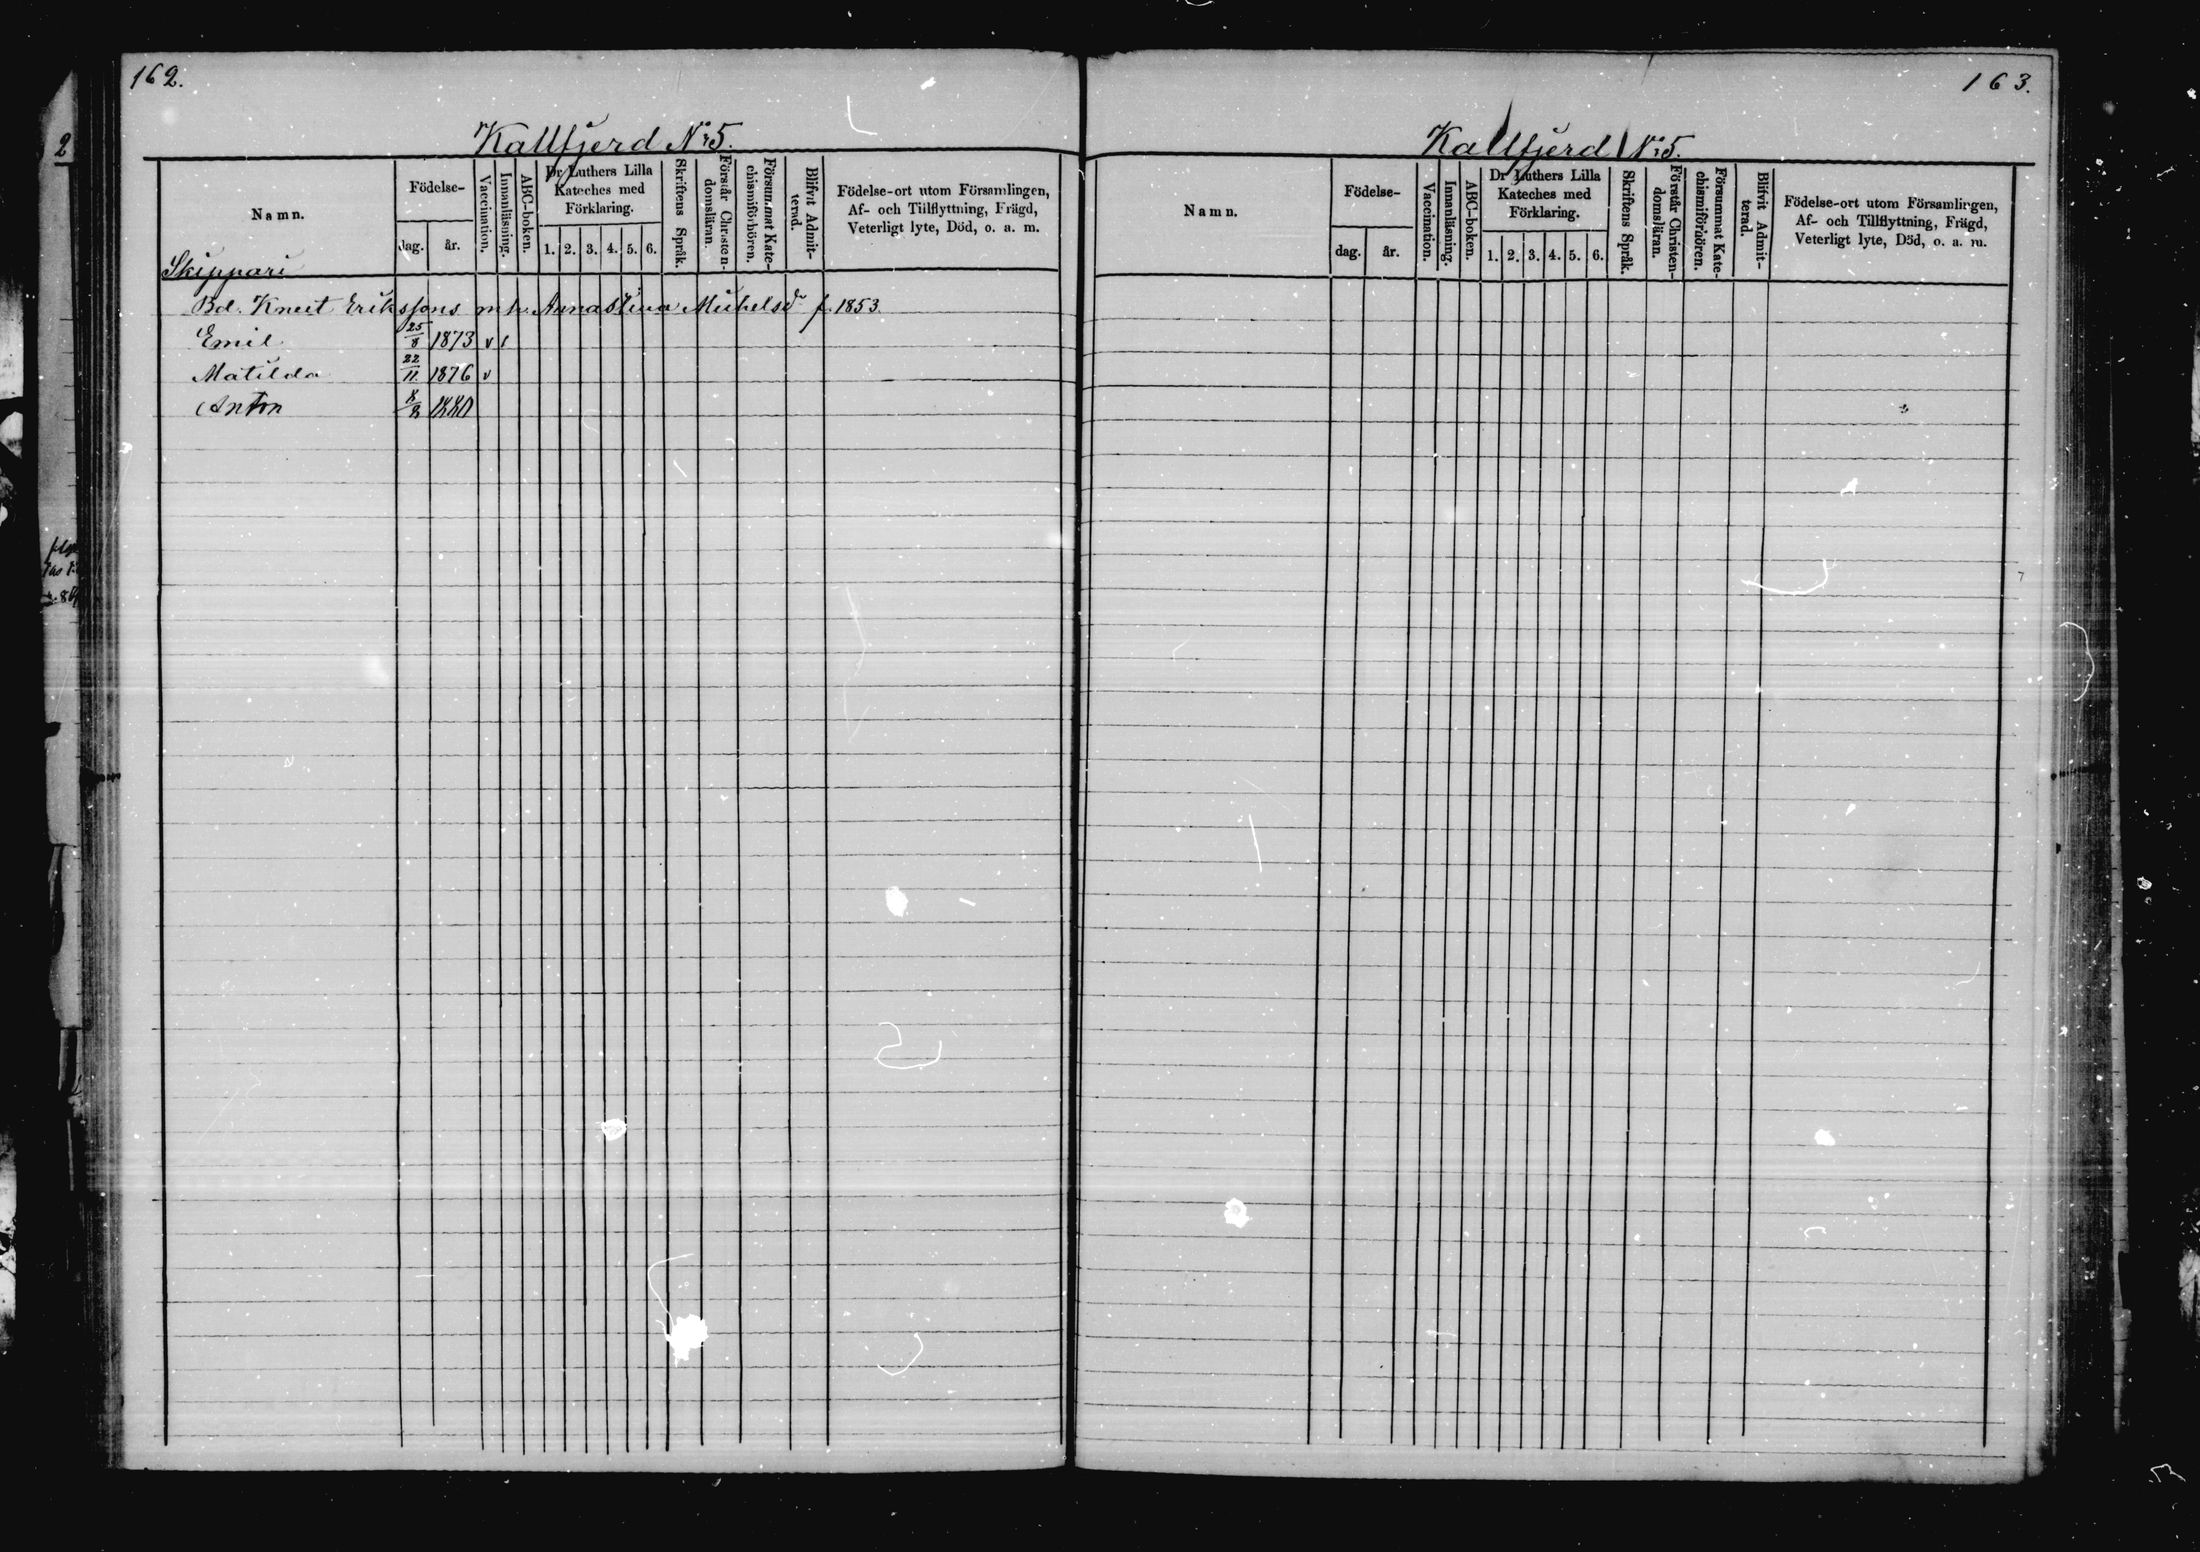 162.
Kallfjerd No 5.
Namn.
Födelse-
dag.
år.
Vaccination.
Innanläsning.
ABC-boken.
Dr Luthers Lilla
Kateches med
Förklaring.
1. 2. 3. 4. 5. 6.
Skriftens Språk.
Förstår Christen-
domsläran.
Försummat Kate-
chismiförhören.
Blifvit Admit-
terad.
Födelse-ort utom Församlingen,
Af- och Tillflyttning, Frägd,
Veterligt lyte, Död, o. a. m.
Skippari
Bd. Knut Erikssons m h. Annastina Michelsdr f. 1853
Emil 25/8 1873 v 1
Matilda 22/11 1876 v
Anton 8/2 1880
163.
Kallfjerd No 5.
Namn.
Födelse-
dag.
år.
Vaccination.
Innanläsning.
ABC-boken.
Dr Luthers Lilla
Kateches med
Förklaring.
1. 2. 3. 4. 5. 6.
Skriftens Språk.
Förstår Christen-
domsläran.
Försummat Kate-
chismiförhören.
Blifvit Admit-
terad.
Födelse-ort utom Församlingen,
Af- och Tillflyttning, Frägd,
Veterligt lyte, Död, o. a. m.